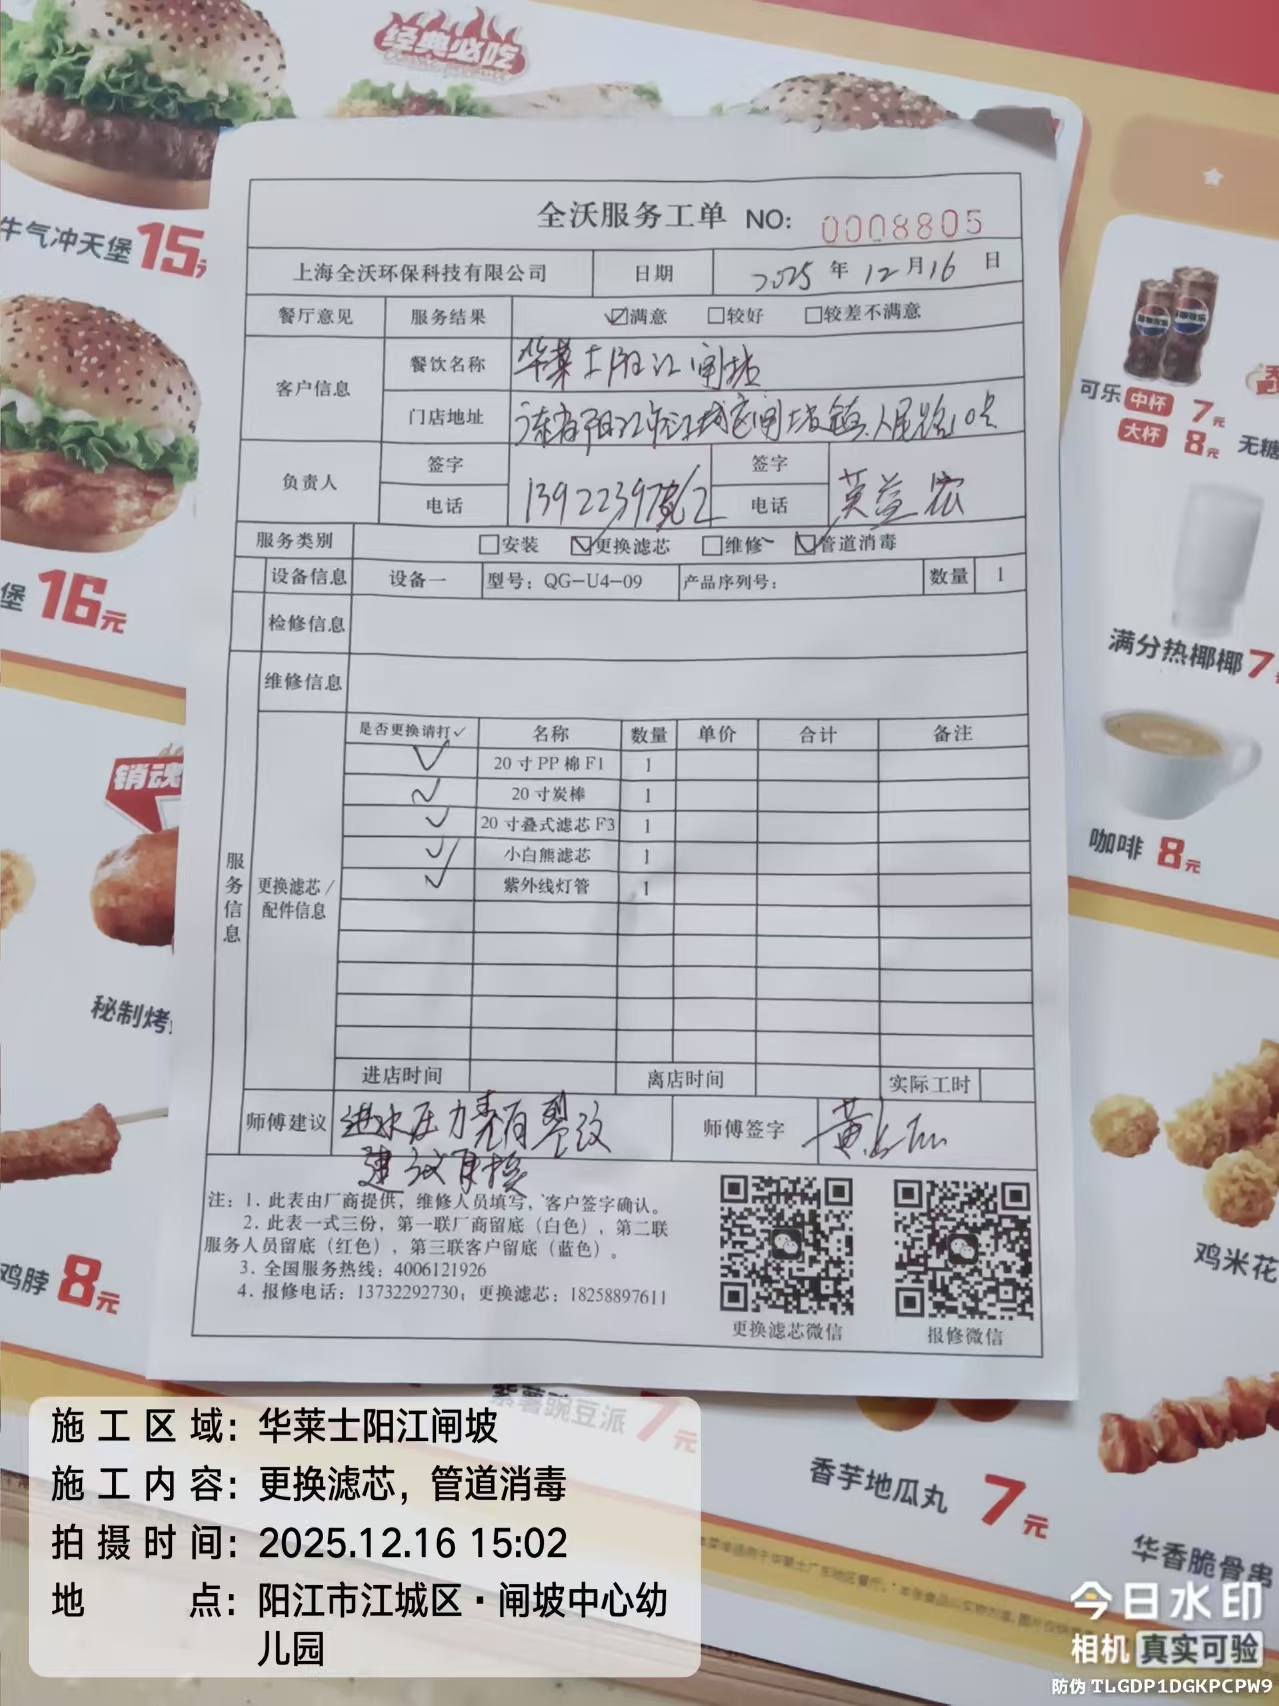 经典必吃
牛气冲天堡 15
堡 16元
销魂
秘制烤
鸡脖 8元
全沃服务工单 NO: 0008805
上海全沃环保科技有限公司 日期 2025年12月16日
餐厅意见 服务结果 ☑满意 □较好 □较差不满意
客户信息 餐饮名称 华莱士阳江闸坡
门店地址 广东省阳江市江城区闸坡镇人民路10号
负责人 签字 签字
电话 电话
服务类别 □安装 ☑更换滤芯 □维修 ☑管道消毒
设备信息 设备一 型号: QG-U4-09 产品序列号: 数量 1
检修信息
维修信息
服务信息
更换滤芯/配件信息
是否更换请打✓ 名称 数量 单价 合计 备注
✓ 20寸PP棉F1 1
✓ 20寸炭棒 1
✓ 20寸叠式滤芯F3 1
✓ 小白熊滤芯 1
✓ 紫外线灯管 1
进店时间 离店时间 实际工时
师傅建议 进水压力表有裂纹 师傅签字
建议更换
注: 1. 此表由厂商提供, 维修人员填写, 客户签字确认。
2. 此表一式三份, 第一联厂商留底(白色), 第二联
服务人员留底(红色), 第三联客户留底(蓝色)。
3. 全国服务热线: 4006121926
4. 报修电话: 13732292730; 更换滤芯: 18258897611
更换滤芯微信 报修微信
可乐 中杯 7元
大杯 8元
无糖
满分热椰椰 7
咖啡 8元
鸡米花
紫薯豌豆派 7元
香芋地瓜丸 7元
华香脆骨串
施工区域: 华莱士阳江闸坡
施工内容: 更换滤芯, 管道消毒
拍摄时间: 2025.12.16 15:02
地点: 阳江市江城区·闸坡中心幼
儿园
今日水印
相机 真实可验
防伪 TLGDP1DGKPCPW9